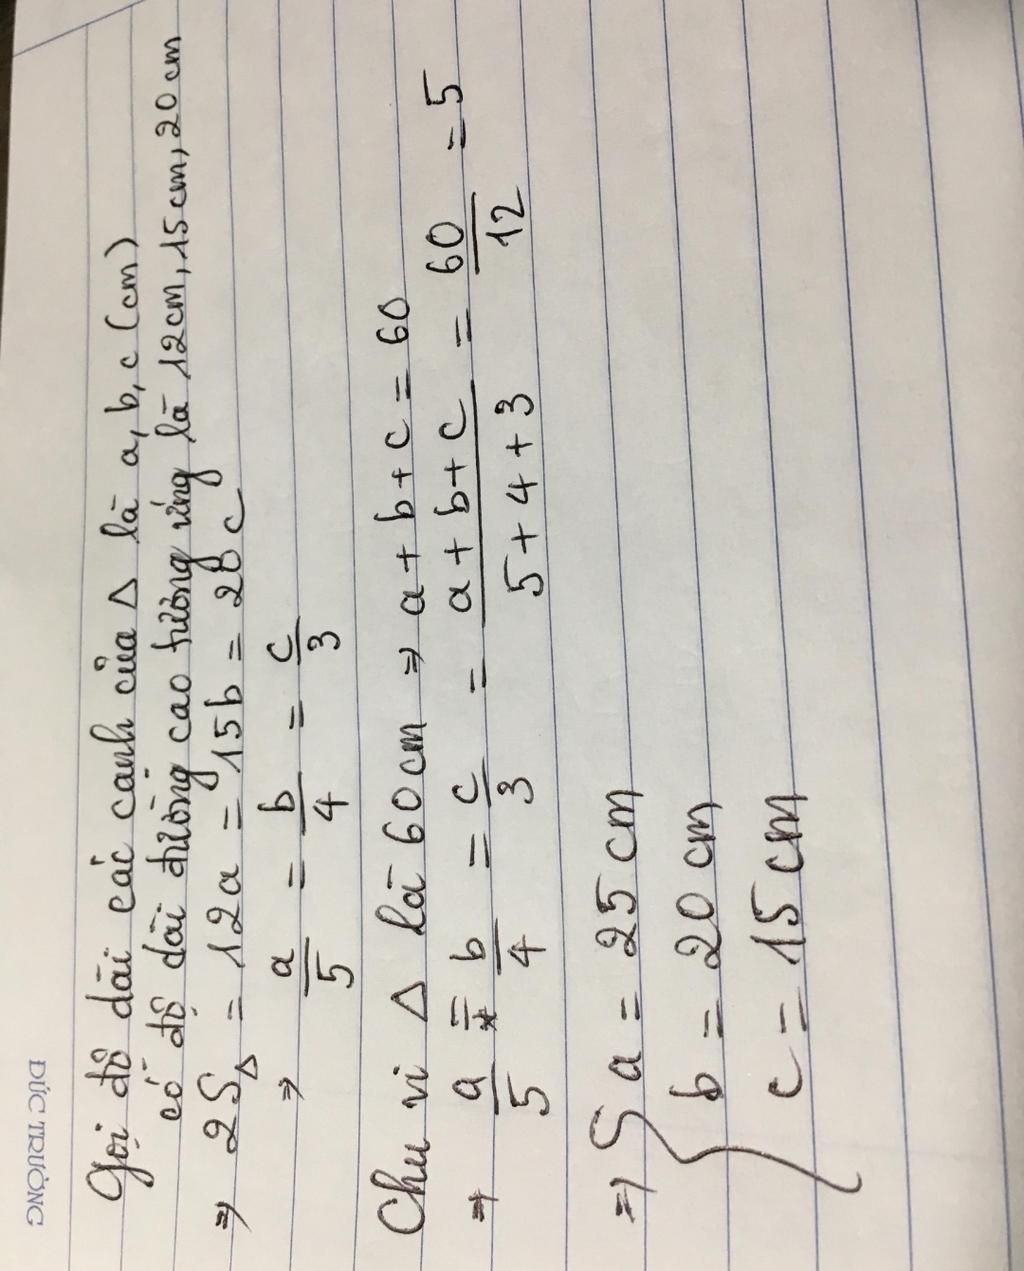 ĐỨC TRƯỜNG
Gọi độ dài các cạnh của Δ là a, b, c (cm)
có độ dài đường cao tương ứng là 12cm, 15cm, 20cm
⇒ 2S_Δ = 12a = 15b = 20c
⇒ a/5 = b/4 = c/3
Chu vi Δ là 60cm ⇒ a + b + c = 60
⇒ a/5 = b/4 = c/3 = (a + b + c)/(5 + 4 + 3) = 60/12 = 5
⇒ { a = 25 cm
b = 20 cm
c = 15 cm